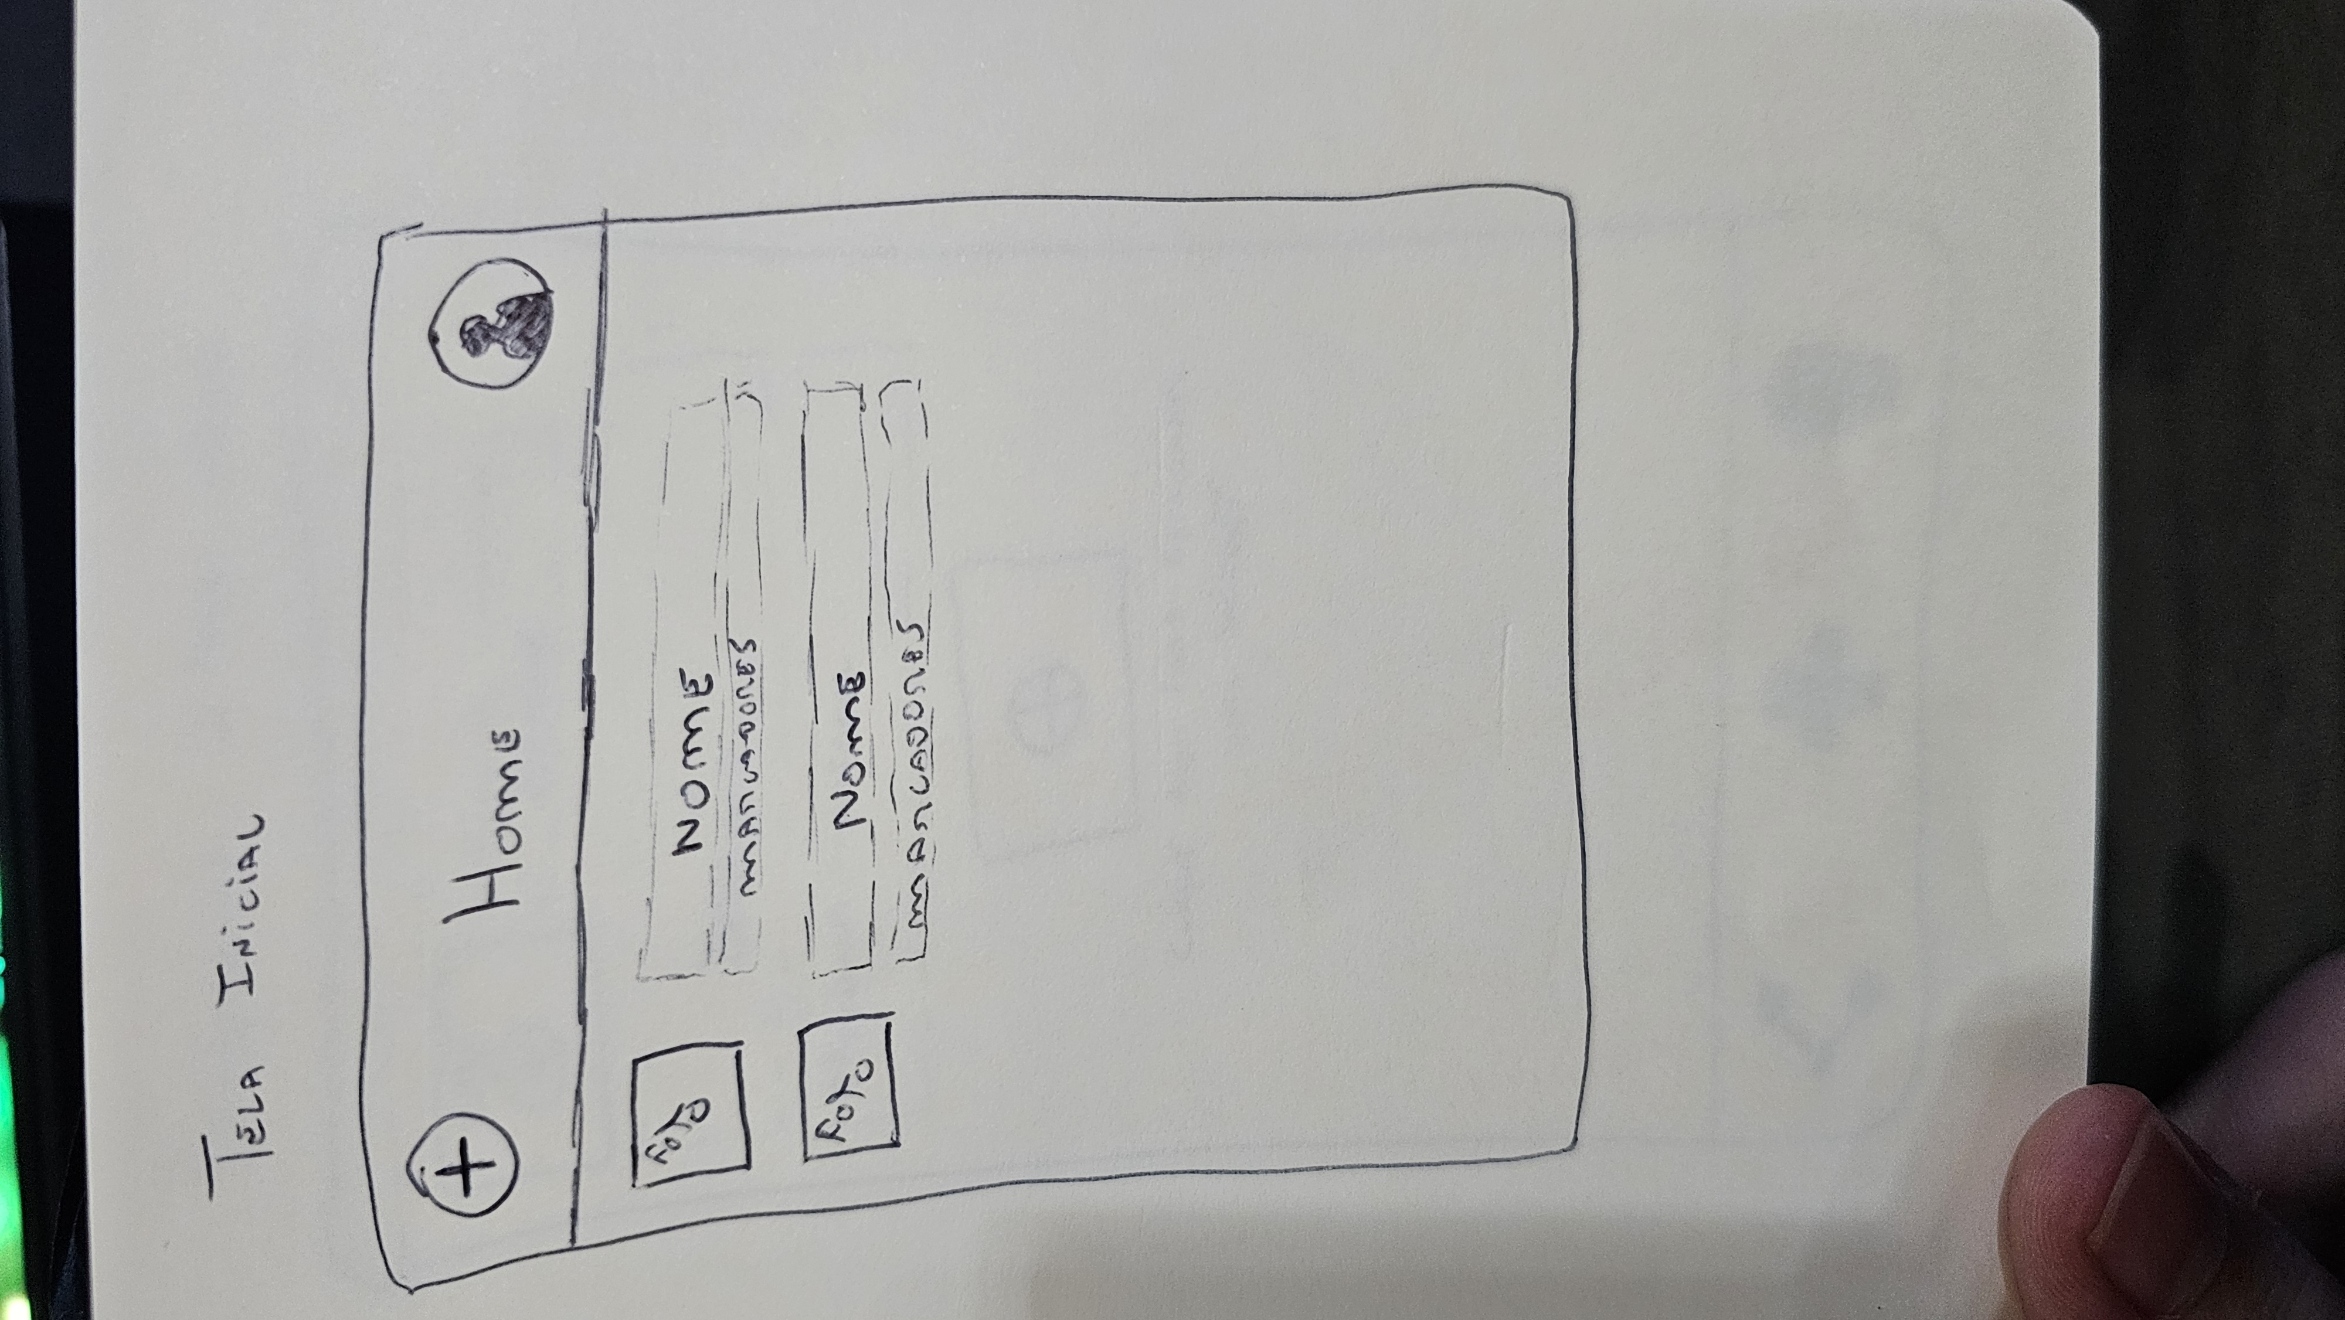 TELA INICIAL
Home
Foto
NOME
MARCADORES
Foto
NOME
MARCADORES